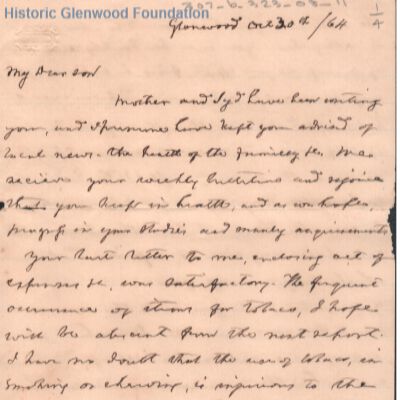 Historic Glenwood Foundation
307-6-323-03-11
1/4
Glenwood Oct 30th /64
My Dear son
Mother and Syd have been writing
you, and I presume have kept you advised of
local news - the health of the family &c. We
recieve your weekly bulletins and rejoice
that you keep in health, and as we hope,
progress in your studies and manly acquirements
Your last letter to me, enclosing act of
expenses &c. was satisfactory. The frequent
occurrence of items for tobaco, I hope
will be absent from the next report.
I have no doubt that the use of tobaco, in
smoking or chewing, is injurious to the